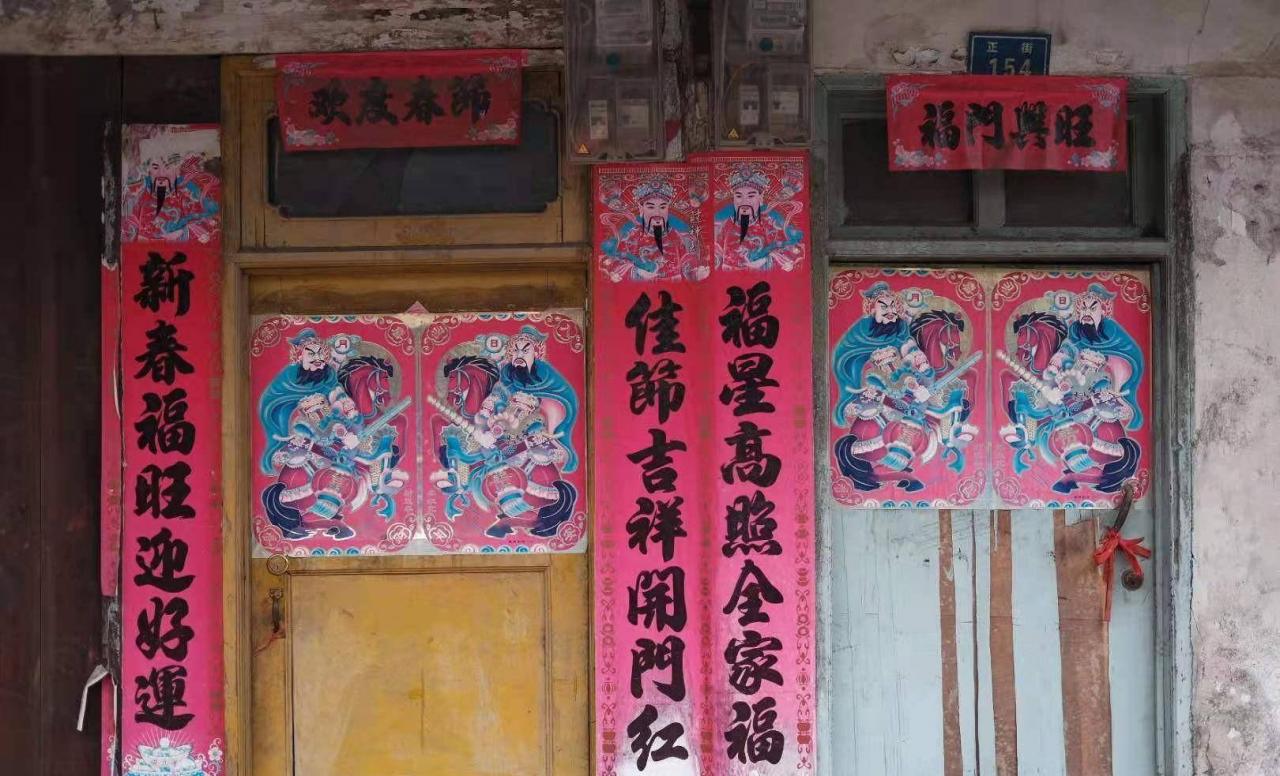 欢度春節
正街
154
福門興旺
新春福旺迎好運
佳節吉祥開門红
福星高照全家福
月
日
月
日